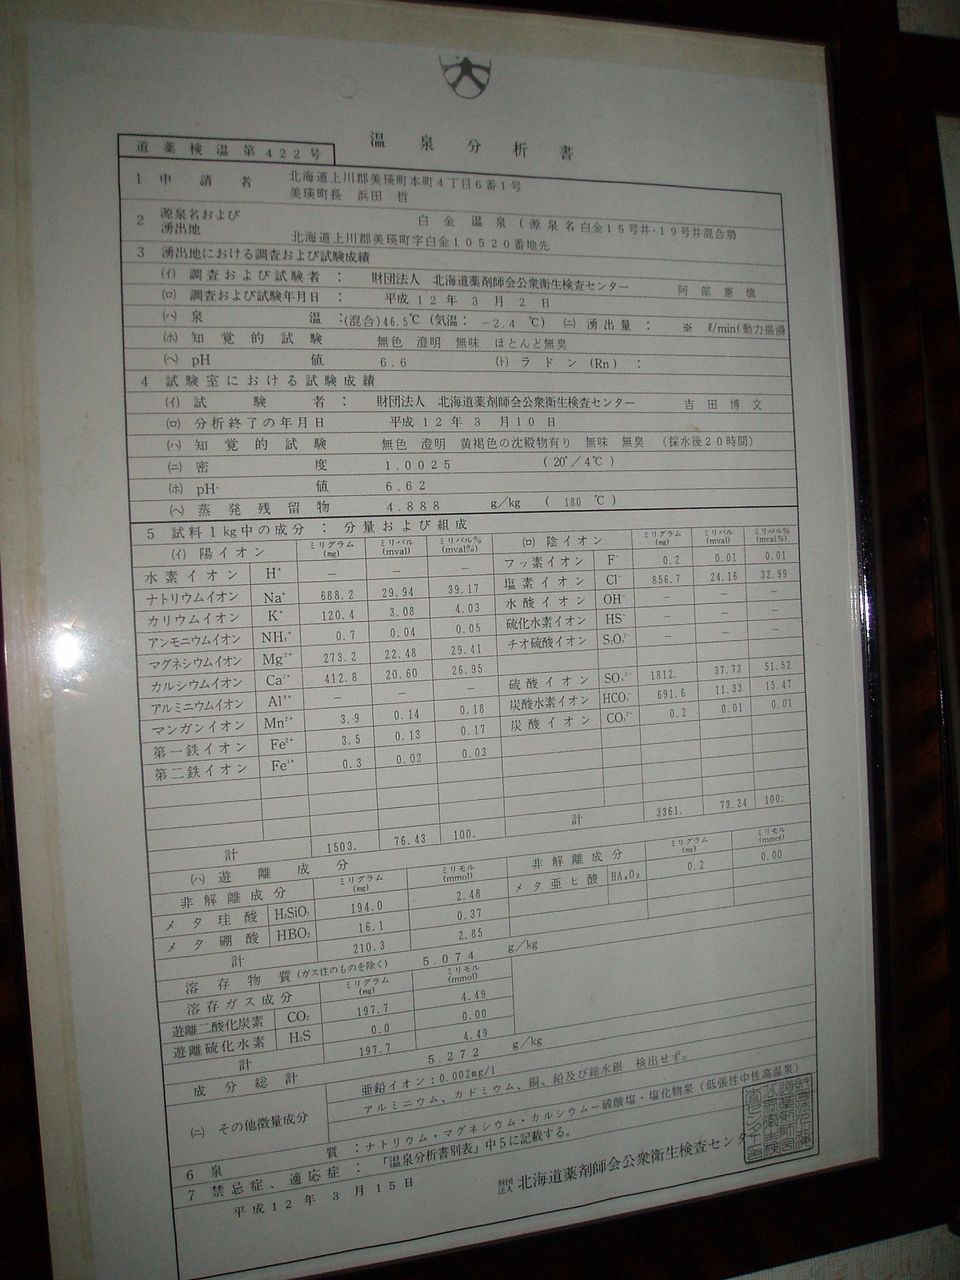 温泉分析書
道薬検温第422号
1 申請者 北海道上川郡美瑛町本町4丁目6番1号
美瑛町長 浜田 哲
2 源泉名および湧出地 白金温泉(源泉名白金15号井・19号井混合泉
北海道上川郡美瑛町字白金10520番地先
3 湧出地における調査および試験成績
(イ) 調査および試験者: 財団法人 北海道薬剤師会公衆衛生検査センター 阿部憲慎
(ロ) 調査および試験年月日: 平成12年3月2日
(ハ) 泉温:(混合)46.5℃(気温: -2.4 ℃) (ニ) 湧出量: ※ ℓ/min(動力揚湯
(ホ) 知覚的試験 無色 澄明 無味 ほとんど無臭
(ヘ) pH値 6.6 (ト) ラドン(Rn) :
4 試験室における試験成績
(イ) 試験者: 財団法人 北海道薬剤師会公衆衛生検査センター 吉田博文
(ロ) 分析終了の年月日 平成12年3月10日
(ハ) 知覚的試験 無色 澄明 黄褐色の沈殿物有り 無味 無臭 (採水後20時間)
(ニ) 密度 1.0025 (20°/4℃)
(ホ) pH値 6.62
(ヘ) 蒸発残留物 4.888 g/kg ( 180 ℃)
5 試料1kg中の成分: 分量および組成
(イ) 陽イオン ミリグラム(mg) ミリバル(mval) ミリバル%(mval%) (ロ) 陰イオン ミリグラム(mg) ミリバル(mval) ミリバル%(mval%)
水素イオン H⁺ − − − フッ素イオン F⁻ 0.2 0.01 0.01
ナトリウムイオン Na⁺ 688.2 29.94 39.17 塩素イオン Cl⁻ 856.7 24.16 32.99
カリウムイオン K⁺ 120.4 3.08 4.03 水酸イオン OH⁻ − − −
アンモニウムイオン NH₄⁺ 0.7 0.04 0.05 硫化水素イオン HS⁻ − − −
マグネシウムイオン Mg²⁺ 273.2 22.48 29.41 チオ硫酸イオン S₂O₃²⁻ − − −
カルシウムイオン Ca²⁺ 412.8 20.60 26.95
アルミニウムイオン Al³⁺ − − − 硫酸イオン SO₄²⁻ 1812. 37.73 51.52
マンガンイオン Mn²⁺ 3.9 0.14 0.18 炭酸水素イオン HCO₃⁻ 691.6 11.33 15.47
第一鉄イオン Fe²⁺ 3.5 0.13 0.17 炭酸イオン CO₃²⁻ 0.2 0.01 0.01
第二鉄イオン Fe³⁺ 0.3 0.02 0.03
計 1503. 76.43 100. 計 3361. 73.24 100.
(ハ) 遊離成分
非解離成分 ミリグラム(mg) ミリモル(mmol) 非解離成分 ミリグラム(mg) ミリモル(mmol)
メタ珪酸 H₂SiO₃ 194.0 2.48 メタ亜ヒ酸 HAsO₂ 0.2 0.00
メタ硼酸 HBO₂ 16.1 0.37
計 210.3 2.85
溶存物質(ガス性のものを除く) 5.074 g/kg
溶存ガス成分 ミリグラム(mg) ミリモル(mmol)
遊離二酸化炭素 CO₂ 197.7 4.49
遊離硫化水素 H₂S 0.0 0.00
計 197.7 4.49
成分総計 5.272 g/kg
(ニ) その他微量成分 亜鉛イオン:0.002mg/l
アルミニウム、カドミウム、銅、鉛及び総水銀 検出せず。
6 泉質:ナトリウム・マグネシウム・カルシウム−硫酸塩・塩化物泉(低張性中性高温泉)
7 禁忌症、適応症:「温泉分析書別表」中5に記載する。
平成12年3月15日
財団法人 北海道薬剤師会公衆衛生検査センター